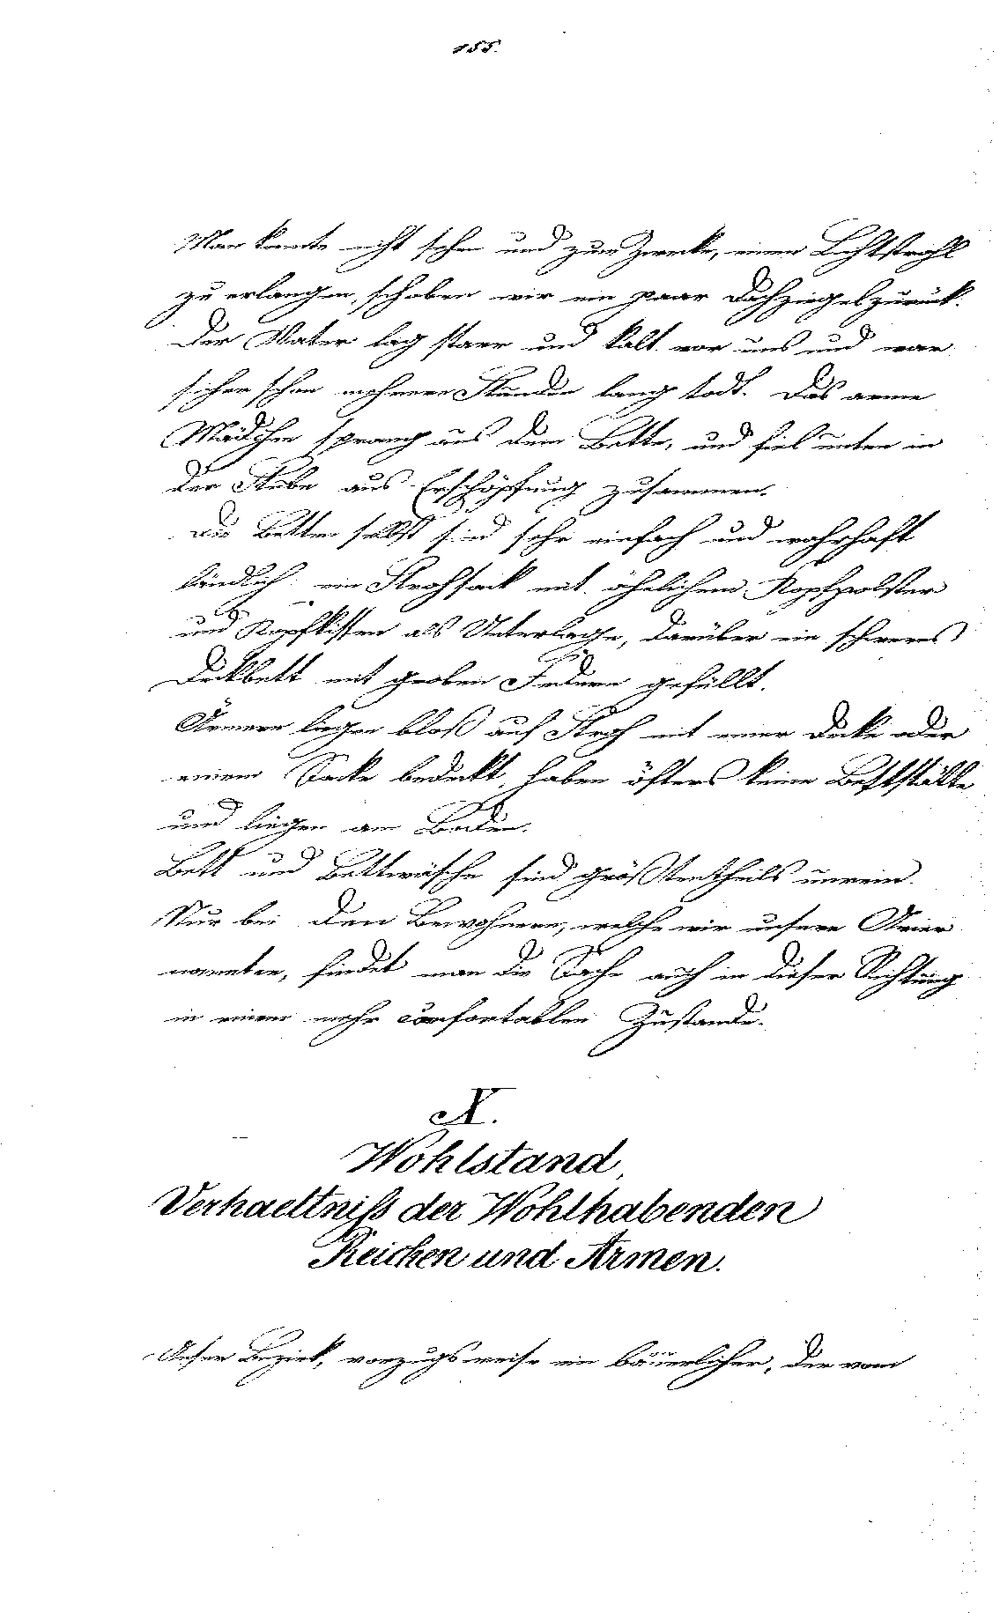 155.
Man konnte nicht sehen und zum Zwecke, einen Lichtstrahl
zu erlangen, schoben wir ein paar Dachziegel zurück.
Der Vater lag starr und kalt vor uns und war
sicher schon mehrere Stunden lang todt. Das arme
Mädchen sprang aus dem Bette, und fiel unten in
der Stube aus Erschöpfung zusammen.
Die Betten selbst sind sehr einfach und wahrhaft
ländlich: ein Strohsack mit ähnlichem Kopfpolster
und Kopfkissen als Unterlage, darüber ein schweres
Deckbett mit groben Federn gefüllt.
Ärmere liegen bloß auf Stroh mit einer Decke oder
einem Sacke bedeckt, haben öfters keine Bettstätte
und liegen am Boden.
Bett und Bettwäsche sind größtentheils unrein.
Nur bei den Bewohnern, welche wir unsere Arier
nannten, findet man die Sache auch in dieser Richtung
in einem mehr comfortablen Zustande.
X.
Wohlstand,
Verhaeltniß der Wohlhabenden
Reichen und Armen.
Unser Bezirk, vorzugsweise ein bäuerlicher, der vom